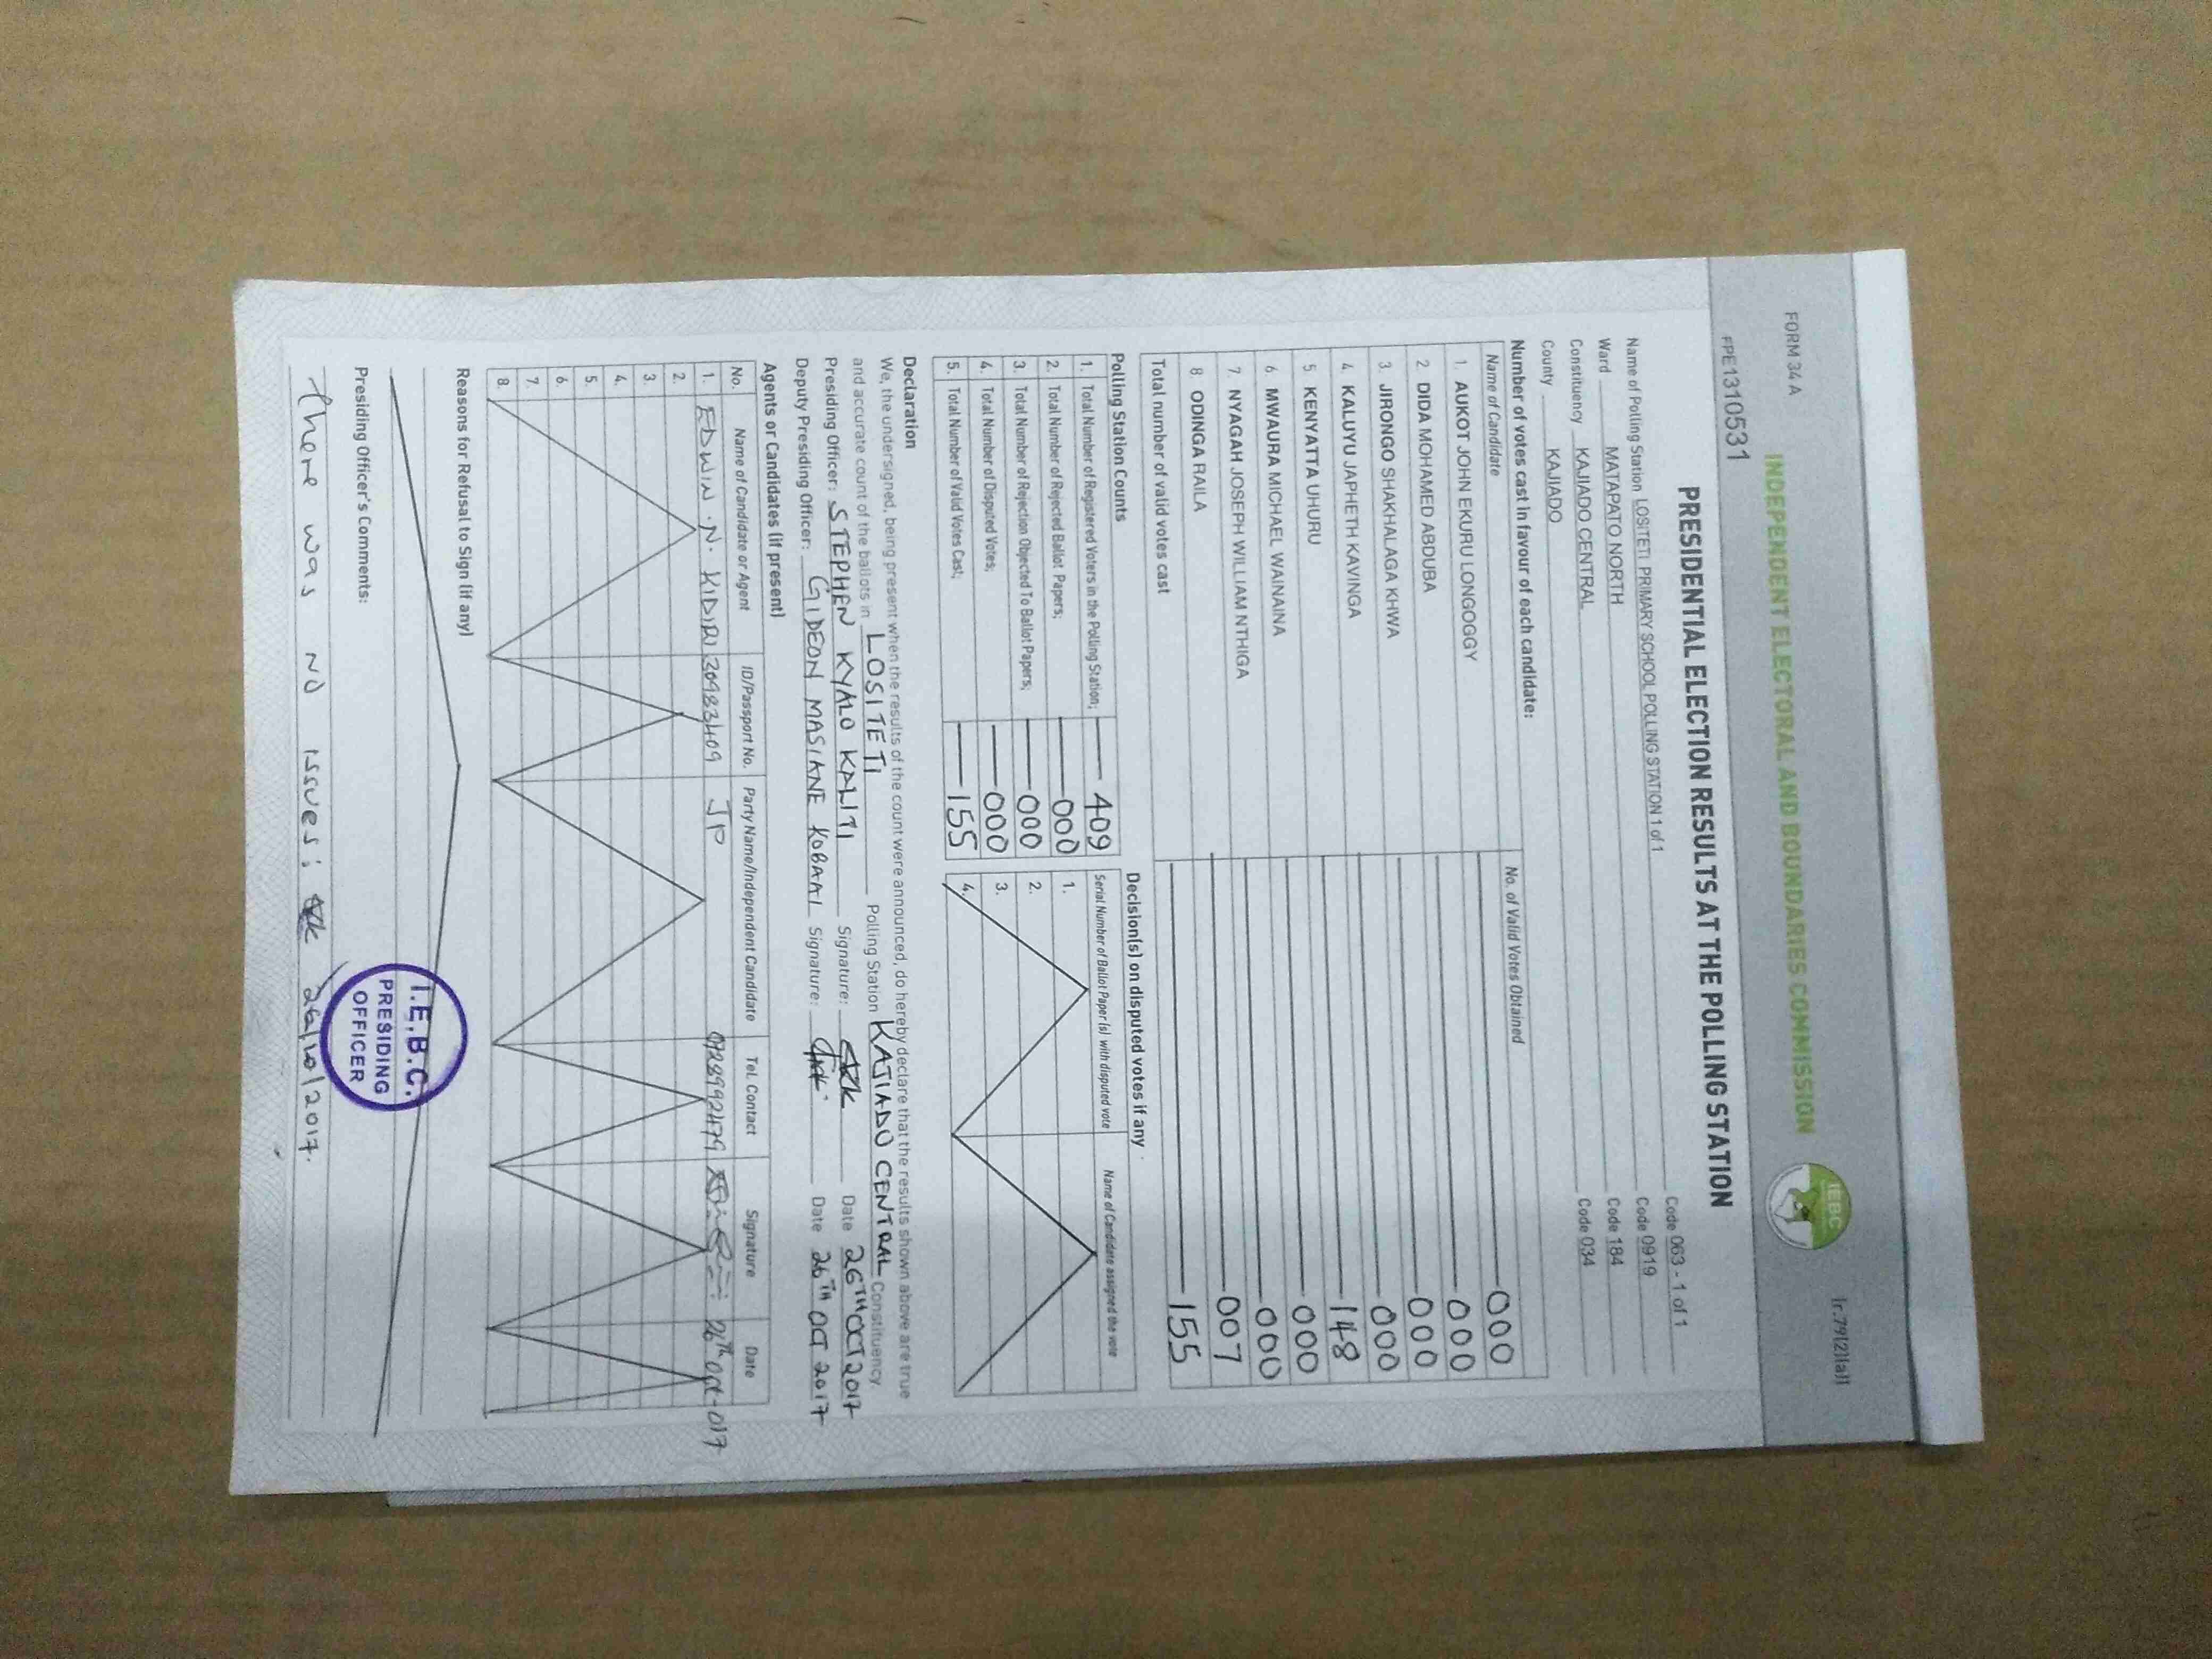 FORM 34 A
INDEPENDENT ELECTORAL AND BOUNDARIES COMMISSION
IEBC
(r.79(2)(a))
FPE1310531
PRESIDENTIAL ELECTION RESULTS AT THE POLLING STATION
Name of Polling Station LOSITETI PRIMARY SCHOOL POLLING STATION 1 of 1 Code 063 - 1 of 1
Ward MATAPATO NORTH Code 0919
Constituency KAJIADO CENTRAL Code 184
County KAJIADO Code 034
Number of votes cast in favour of each candidate:
Name of Candidate No. of Valid Votes Obtained
1. AUKOT JOHN EKURU LONGOGGY 000
2. DIDA MOHAMED ABDUBA 000
3. JIRONGO SHAKHALAGA KHWA 000
4. KALUYU JAPHETH KAVINGA 000
5. KENYATTA UHURU 148
6. MWAURA MICHAEL WAINAINA 000
7. NYAGAH JOSEPH WILLIAM NTHIGA 000
8. ODINGA RAILA 007
Total number of valid votes cast 155
Polling Station Counts
1. Total Number of Registered Voters in the Polling Station; 409
2. Total Number of Rejected Ballot Papers; 000
3. Total Number of Rejection Objected To Ballot Papers; 000
4. Total Number of Disputed Votes; 000
5. Total Number of Valid Votes Cast; 155
Decision(s) on disputed votes if any
Serial Number of Ballot Paper (s) with disputed vote Name of Candidate assigned the vote
1.
2.
3.
4.
Declaration
We, the undersigned, being present when the results of the count were announced, do hereby declare that the results shown above are true
and accurate count of the ballots in LOSITETI Polling Station KAJIADO CENTRAL Constituency.
Presiding Officer: STEPHEN KYALO KALITI Signature: Date 26TH OCT 2017
Deputy Presiding Officer: GIDEON MASIANE KOBAAI Signature: Date 26TH OCT 2017
Agents or Candidates (if present)
No. Name of Candidate or Agent ID/Passport No. Party Name/Independent Candidate Tel. Contact Signature Date
1. EDWIN .N. KIDIRI 30983409 JP 0728992479 26th oct-017
2.
3.
4.
5.
6.
7.
8.
Reasons for Refusal to Sign (if any)
Presiding Officer's Comments:
There was no issues; 26/10/2017.
I.E.B.C.
PRESIDING
OFFICER